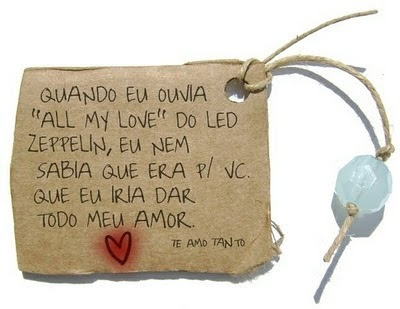 QUANDO EU OUVIA
"ALL MY LOVE" DO LED
ZEPPELIN, EU NEM
SABIA QUE ERA P/ VC.
QUE EU IRIA DAR
TODO MEU AMOR.
TE AMO TANTO